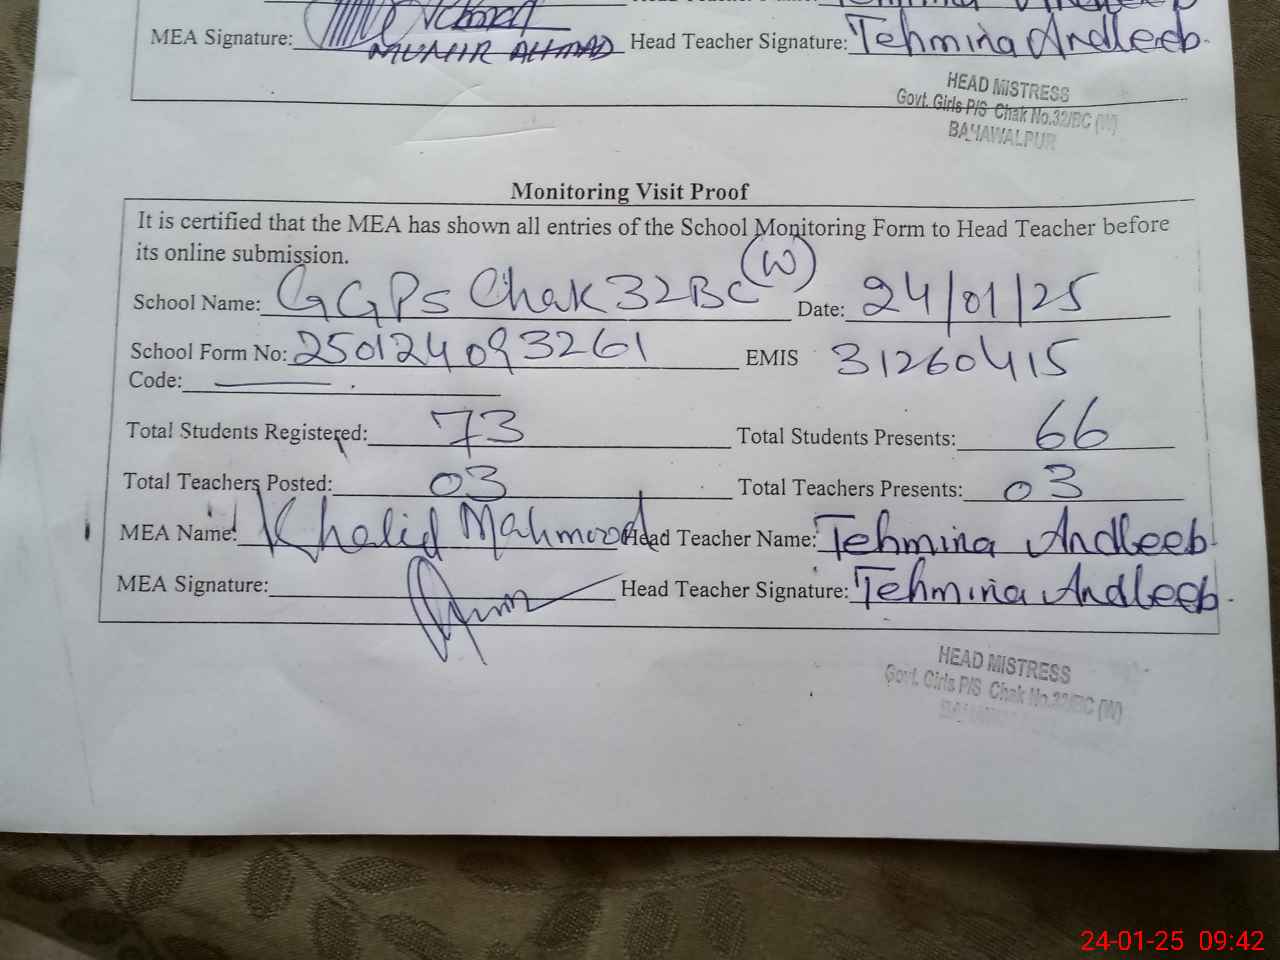 MEA Signature: MUNIR AHMAD Head Teacher Signature: Tehmina Andleeb.
HEAD MISTRESS
Govt. Girls P/S Chak No.32/BC (W)
BAHAWALPUR
Monitoring Visit Proof
It is certified that the MEA has shown all entries of the School Monitoring Form to Head Teacher before
its online submission.
School Name: GGPS Chak 32BC (W) Date: 24/01/25
School Form No: 250124093261 EMIS 31260415
Code:
Total Students Registered: 73 Total Students Presents: 66
Total Teachers Posted: 03 Total Teachers Presents: 03
MEA Name: Khalid Mahmood Head Teacher Name: Tehmina Andleeb
MEA Signature: Head Teacher Signature: Tehmina Andleeb.
HEAD MISTRESS
Govt. Girls P/S Chak No.32/BC (W)
24-01-25 09:42